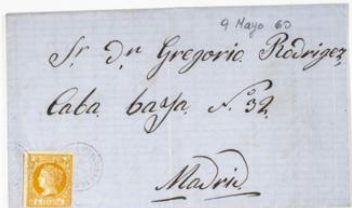 9 Mayo 60
Sr. Dn Gregorio Rodrigez
Caba baja N.º 32
Madrid